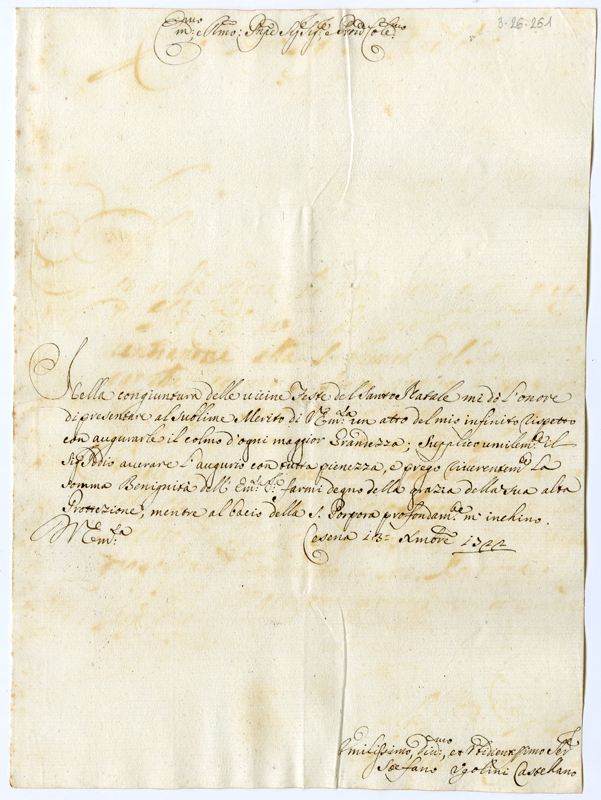 3-26-261
Em.mo e Rmo: Sig.r Sig.r e Pron Col.mo
Nella congiuntura delle vicine Feste del Santo Natale mi dò l'onore
di presentare al Sublime Merito di V.Em.za un atto del mio infinito Rispetto
con augurarle il colmo d'ogni maggior Grandezza; Supplico umilem.te il
Sig.r Iddio averare l'augurio con tutta pienezza, e prego riverentem.te La
Somma Benignità dell' Em.za V.ra farmi degno della grazia della Sua alta
Prottezione, mentre al bacio della S. Porpora profondam.te m'inchino.
V Em.za
Cesena 13: Xmbre
Umilissimo, Div.mo, et Obedientissimo Ser.
Stefano Ugolini Castellano